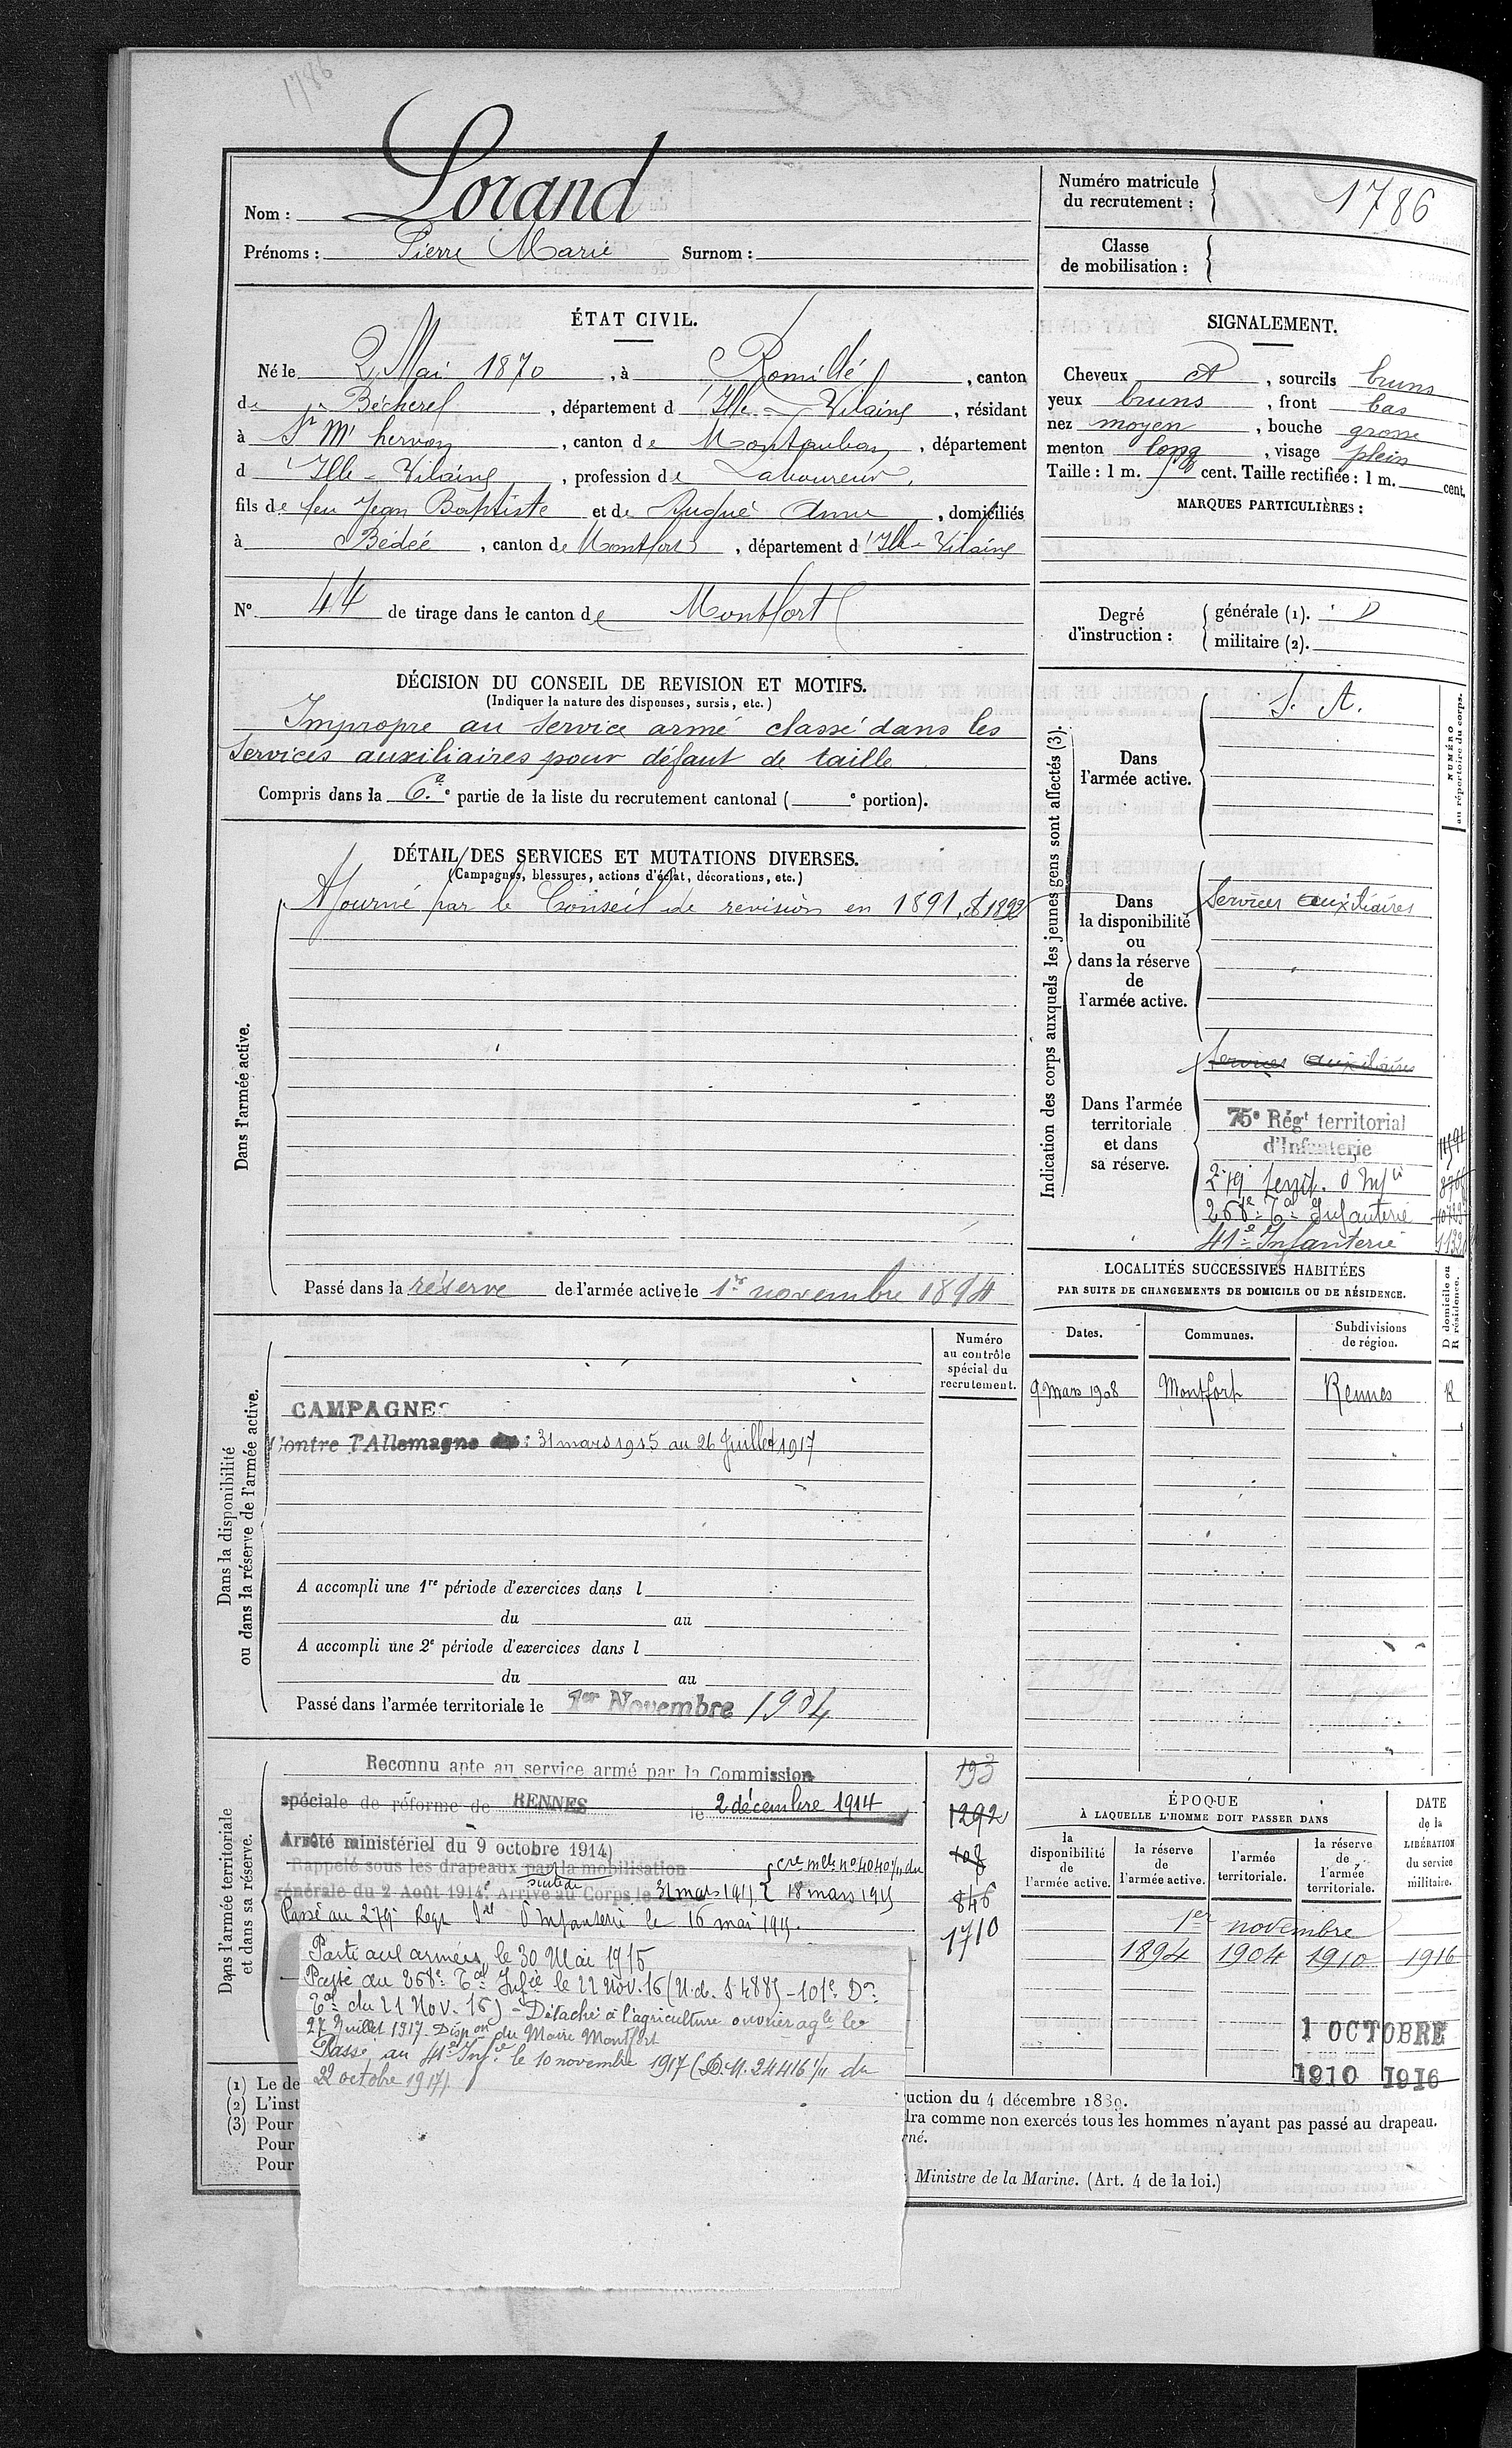 1786
Nom : Lorand
Prénoms : Pierre Marie Surnom :
Numéro matricule du recrutement : 1786
Classe de mobilisation :
ÉTAT CIVIL.
Né le 2 Mai 1870, à Romillé, canton
de Bécherel, département d'Ille-Vilaine, résidant
à St M' hervon, canton de Montauban, département
d'Ille-Vilaine, profession de Laboureur,
fils de feu Jean Baptiste et de Anne, domiciliés
à Bédée, canton de Montfort, département d'Ille-Vilaine
N° 44 de tirage dans le canton de Montfort
SIGNALEMENT.
Cheveux, sourcils bruns
yeux bruns, front bas
nez moyen, bouche grosse
menton long, visage plein
Taille : 1 m. cent. Taille rectifiée : 1 m. cent.
MARQUES PARTICULIÈRES :
Degré d'instruction :
générale (1).
militaire (2).
DÉCISION DU CONSEIL DE REVISION ET MOTIFS.
(Indiquer la nature des dispenses, sursis, etc.)
Impropre au Service armé classé dans les
Services auxiliaires pour défaut de taille
Compris dans la 6.e e partie de la liste du recrutement cantonal ( e portion).
DÉTAIL DES SERVICES ET MUTATIONS DIVERSES.
(Campagnes, blessures, actions d'éclat, décorations, etc.)
Dans l'armée active.
Ajourné par le Conseil de revision en 1891, & 1892
Passé dans la réserve de l'armée active le 1er novembre 1894
Indication des corps auxquels les jeunes gens sont affectés (3).
NUMÉRO au répertoire du corps.
Dans l'armée active.
S. A.
Dans la disponibilité ou dans la réserve de l'armée active.
Services auxiliaires
Dans l'armée territoriale et dans sa réserve.
Services auxiliaires
75e Régt territorial
d'Infanterie
279 territ. d'Infie
268e Tal Infanterie
41e Infanterie
LOCALITÉS SUCCESSIVES HABITÉES
PAR SUITE DE CHANGEMENTS DE DOMICILE OU DE RÉSIDENCE.
Dates. Communes. Subdivisions de région. D domicile ou R résidence.
9 mars 1908 Montfort Rennes R
Dans la disponibilité
ou dans la réserve de l'armée active.
Numéro au contrôle spécial du recrutement.
CAMPAGNES
Contre l'Allemagne du : 31 mars 1915 au 26 Juillet 1917
A accompli une 1re période d'exercices dans l
du au
A accompli une 2e période d'exercices dans l
du au
Passé dans l'armée territoriale le 1er Novembre 1904
Dans l'armée territoriale
et dans sa réserve.
Reconnu apte au service armé par la Commission
spéciale de réforme de RENNES le 2 décembre 1914
Arrêté ministériel du 9 octobre 1914)
Rappelé sous les drapeaux par la mobilisation cre mlle no 4040 1/11 du
générale du 2 Août 1914. Arrivé au Corps le 31 mars 1915 18 mars 1915
Passé au 279 Regt d'Infanterie le 16 mai 1915.
193
1292
108
846
1710
Parti aux armées le 30 Mai 1915
Passé au 268e Tal Infie le 22 Nov. 16 (N.d. S 4885 - 101e Don
Tale du 21 Nov. 16) - Détaché à l'agriculture ouvrier agle le
27 Juillet 1917. Dispon du Maire Montfort
Passé au 41e Infie le 10 novembre 1917 (D.M. 24416 1/11 du
22 octobre 1917).
ÉPOQUE
À LAQUELLE L'HOMME DOIT PASSER DANS
la disponibilité de l'armée active.
la réserve de l'armée active.
l'armée territoriale.
la réserve de l'armée territoriale.
DATE de la LIBÉRATION du service militaire.
1er novembre
1894 1904 1910 1916
1 OCTOBRE
1910 1916
(1) Le de
(2) L'inst
(3) Pour
Pour
Pour
uction du 4 décembre 1889.
dra comme non exercés tous les hommes n'ayant pas passé au drapeau.
rné.
Ministre de la Marine. (Art. 4 de la loi.)